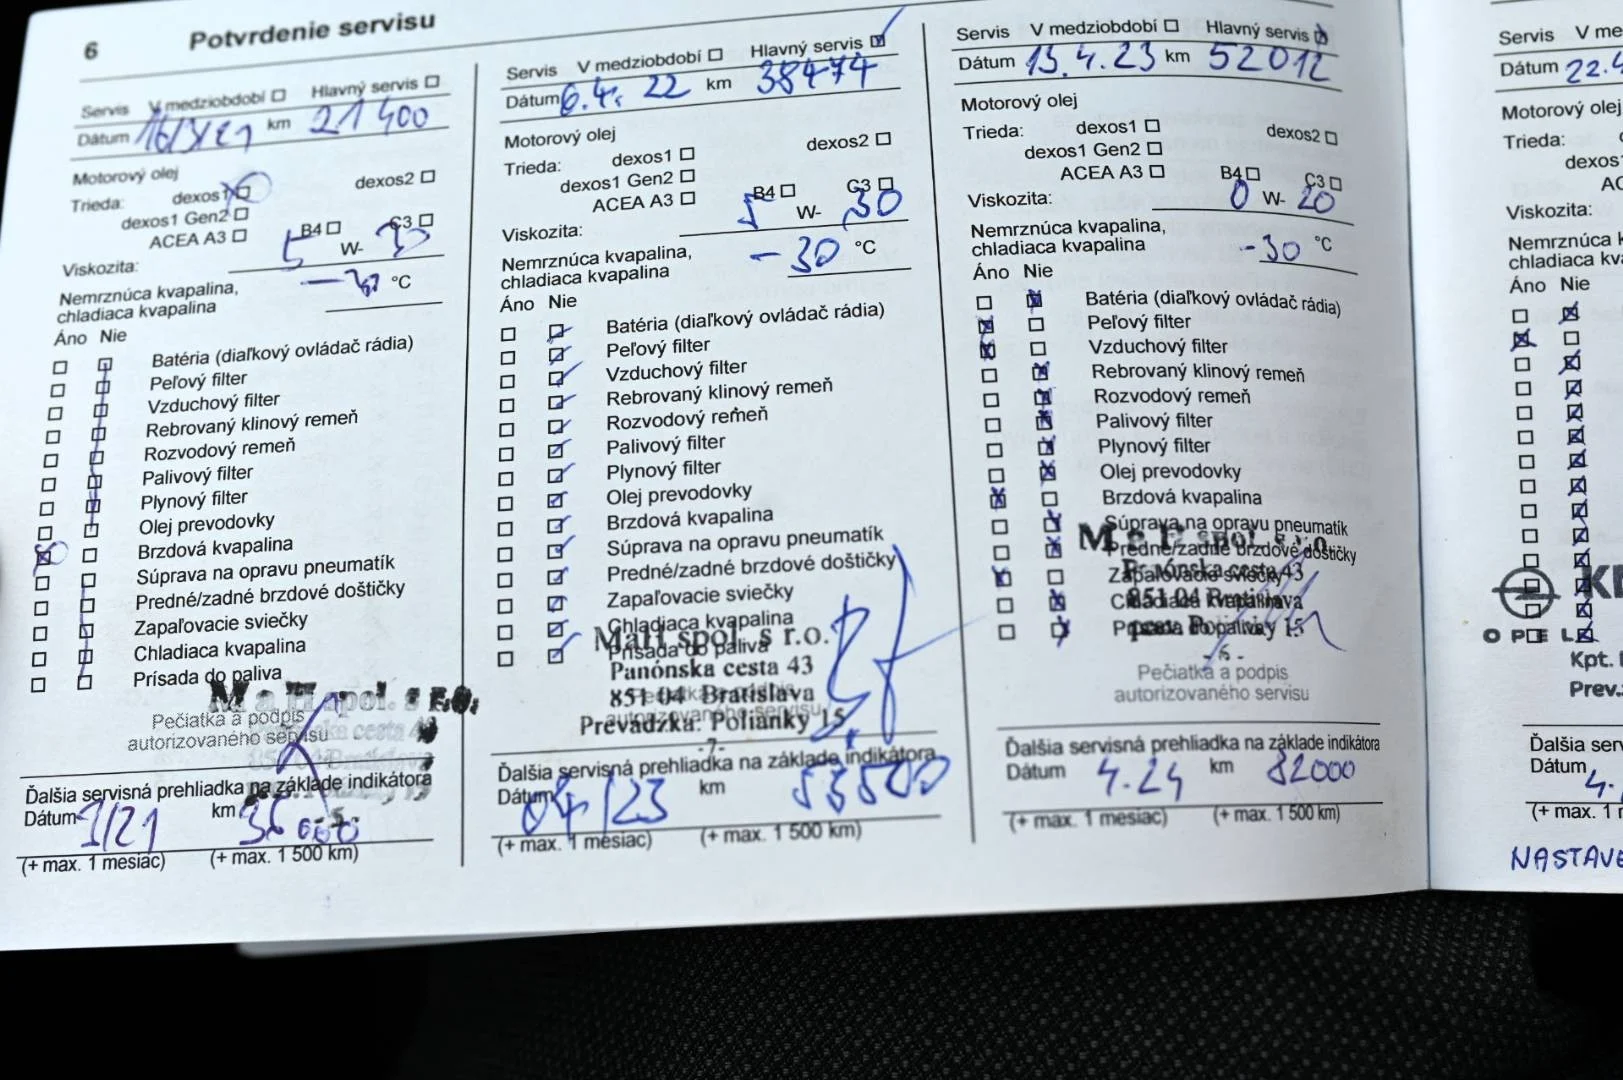 6 Potvrdenie servisu
Servis V medziobdobí Hlavný servis
Dátum km 21 400
Motorový olej
Trieda: dexos1 dexos2
dexos1 Gen2
ACEA A3 B4 C3
Viskozita: 5 W- 30
Nemrznúca kvapalina,
chladiaca kvapalina °C
Áno Nie
Batéria (diaľkový ovládač rádia)
Peľový filter
Vzduchový filter
Rebrovaný klinový remeň
Rozvodový remeň
Palivový filter
Plynový filter
Olej prevodovky
Brzdová kvapalina
Súprava na opravu pneumatík
Predné/zadné brzdové doštičky
Zapaľovacie sviečky
Chladiaca kvapalina
Prísada do paliva
Pečiatka a podpis
autorizovaného servisu
Ďalšia servisná prehliadka na základe indikátora
Dátum km
(+ max. 1 mesiac) (+ max. 1 500 km)
Servis V medziobdobí Hlavný servis
Dátum 6.4. 22 km 38474
Motorový olej
Trieda: dexos1 dexos2
dexos1 Gen2
ACEA A3 B4 C3
Viskozita: 5 W- 30
Nemrznúca kvapalina,
chladiaca kvapalina -30 °C
Áno Nie
Batéria (diaľkový ovládač rádia)
Peľový filter
Vzduchový filter
Rebrovaný klinový remeň
Rozvodový remeň
Palivový filter
Plynový filter
Olej prevodovky
Brzdová kvapalina
Súprava na opravu pneumatík
Predné/zadné brzdové doštičky
Zapaľovacie sviečky
Chladiaca kvapalina
Prísada do paliva
spol. s r.o.
Panónska cesta 43
851 04 Bratislava
Prevádzka: Polianky 15
-7-
Pečiatka a podpis
autorizovaného servisu
Ďalšia servisná prehliadka na základe indikátora
Dátum 04/23 km 53500
(+ max. 1 mesiac) (+ max. 1 500 km)
Servis V medziobdobí Hlavný servis
Dátum 13.4.23 km 52012
Motorový olej
Trieda: dexos1 dexos2
dexos1 Gen2
ACEA A3 B4 C3
Viskozita: 0 W- 20
Nemrznúca kvapalina,
chladiaca kvapalina -30 °C
Áno Nie
Batéria (diaľkový ovládač rádia)
Peľový filter
Vzduchový filter
Rebrovaný klinový remeň
Rozvodový remeň
Palivový filter
Plynový filter
Olej prevodovky
Brzdová kvapalina
Súprava na opravu pneumatík
Predné/zadné brzdové doštičky
Zapaľovacie sviečky
Chladiaca kvapalina
Panónska cesta 43
851 04 Bratislava
Pečiatka a podpis
autorizovaného servisu
Ďalšia servisná prehliadka na základe indikátora
Dátum 4.24 km 82000
(+ max. 1 mesiac) (+ max. 1 500 km)
Servis V me
Dátum 22.4
Motorový olej
Trieda:
dexos1
Viskozita:
Nemrznúca
chladiaca
Áno Nie
OPEL
Kpt.
Prev.
Ďalšia
Dátum 4.
(+ max. 1